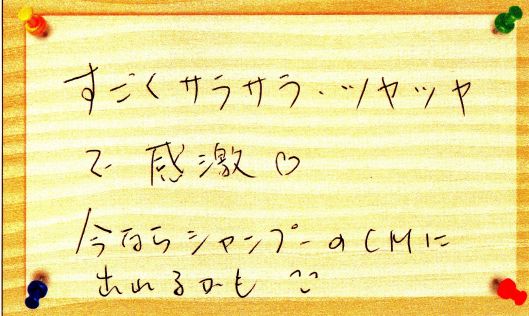 すごくサラサラ・ツヤツヤ
で感激♡
今ならシャンプーのCMに
出れるかも